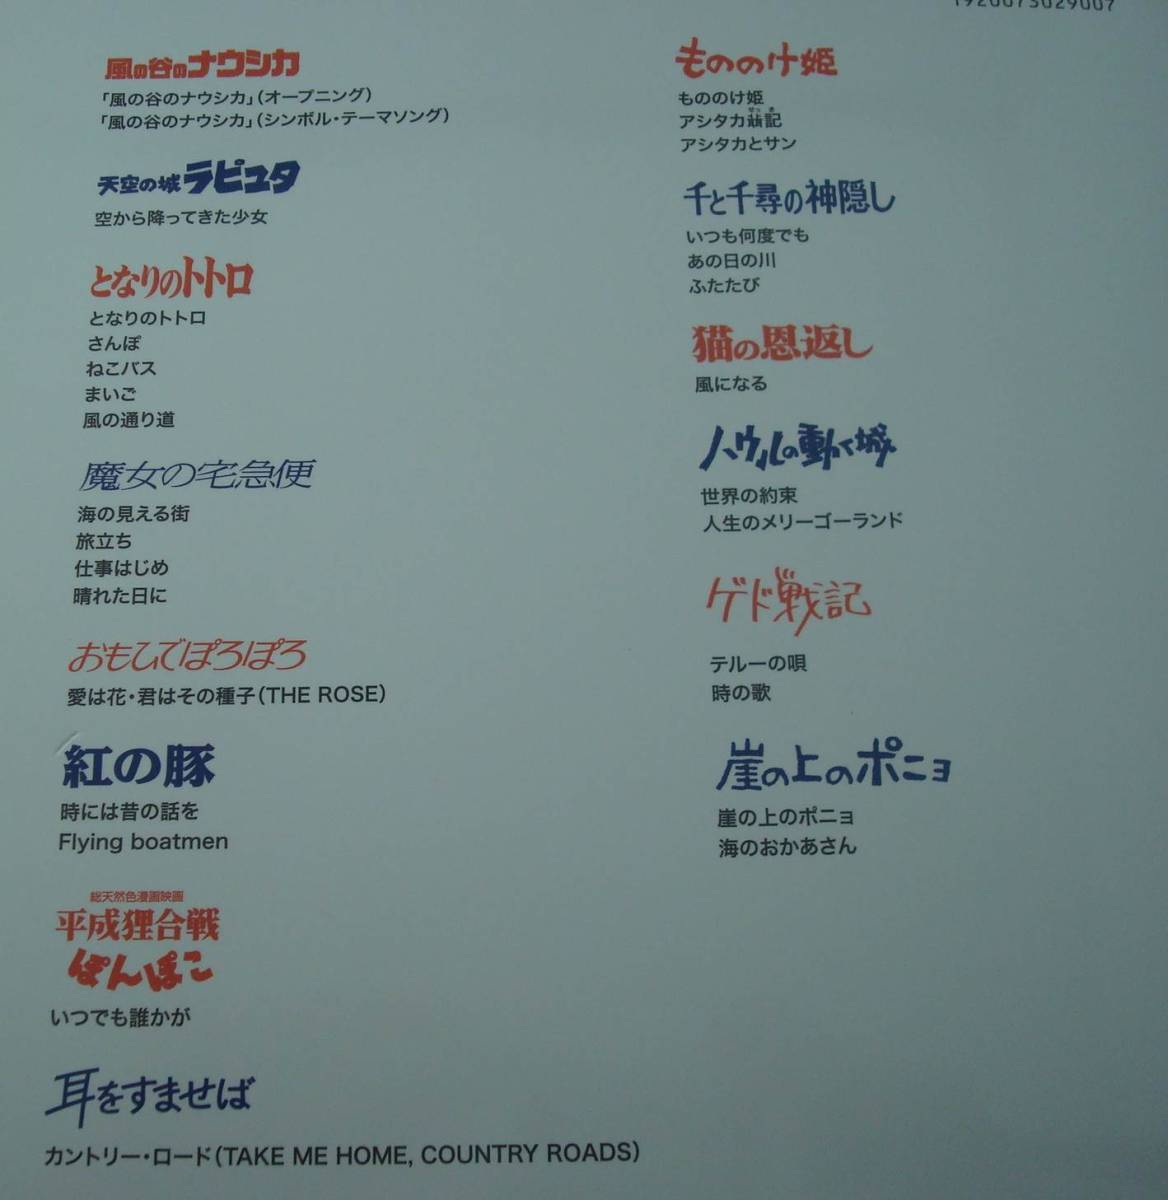 1920073029007
風の谷のナウシカ
「風の谷のナウシカ」(オープニング)
「風の谷のナウシカ」(シンボル・テーマソング)
天空の城ラピュタ
空から降ってきた少女
となりのトトロ
となりのトトロ
さんぽ
ねこバス
まいご
風の通り道
魔女の宅急便
海の見える街
旅立ち
仕事はじめ
晴れた日に
おもひでぽろぽろ
愛は花・君はその種子(THE ROSE)
紅の豚
時には昔の話を
Flying boatmen
総天然色漫画映画
平成狸合戦
ぽんぽこ
いつでも誰かが
耳をすませば
カントリー・ロード(TAKE ME HOME, COUNTRY ROADS)
もののけ姫
もののけ姫
せっき
アシタカ𦻙記
アシタカとサン
千と千尋の神隠し
いつも何度でも
あの日の川
ふたたび
猫の恩返し
風になる
ハウルの動く城
世界の約束
人生のメリーゴーランド
ゲド戦記
テルーの唄
時の歌
崖の上のポニョ
崖の上のポニョ
海のおかあさん